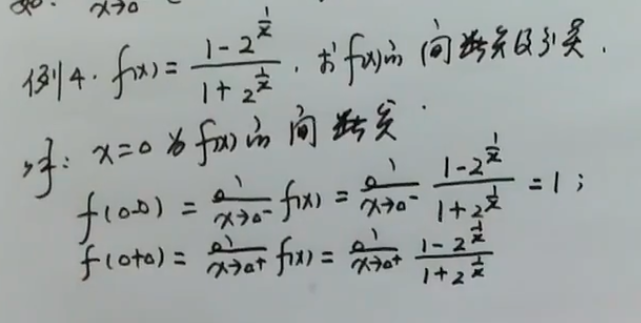 x→0
例4. f(x) = (1 - 2^{1/x}) / (1 + 2^{1/x}). 求f(x)的间断点及引类.
解: x=0为f(x)的间断点.
f(0-0) = lim_{x→0^-} f(x) = lim_{x→0^-} (1 - 2^{1/x}) / (1 + 2^{1/x}) = 1;
f(0+0) = lim_{x→0^+} f(x) = lim_{x→0^+} (1 - 2^{1/x}) / (1 + 2^{1/x})